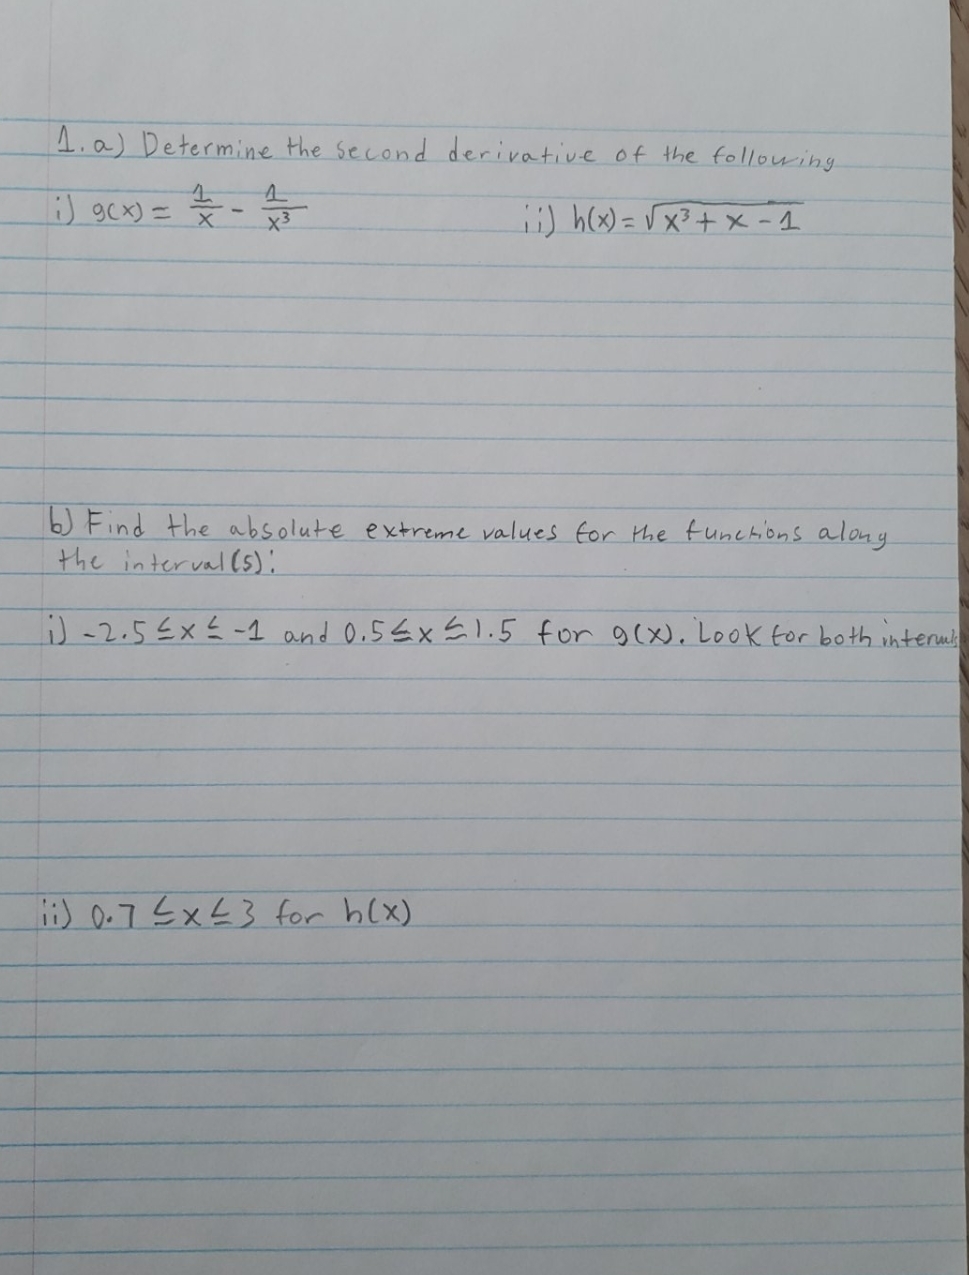 1. a) Determine the second derivative of the following
i) g(x) = 1/x - 1/x³ ii) h(x) = √(x³ + x - 1)
b) Find the absolute extreme values for the functions along
the interval(s):
i) -2.5 ≤ x ≤ -1 and 0.5 ≤ x ≤ 1.5 for g(x). Look for both intervals
ii) 0.7 ≤ x ≤ 3 for h(x)